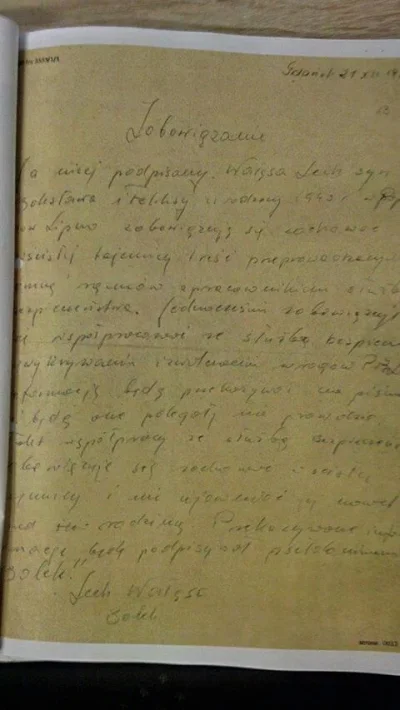 Gdańsk 21 XII 19
Zobowiązanie
ja niżej podpisany Wałęsa Lech syn
Bolesława i Feliksy urodzony 1943 r
pow Lipno zobowiązuję się zachować
ścisłej tajemnicy treść przeprowadzonych
mną rozmów z pracownikami służb
bezpieczeństwa. Jednocześnie zobowiązuję
się współpracować ze służbą bezpiecz
wykrywaniu i zwalczaniu wrogów PRL
informację będę przekazywać na piśmie
i będą one polegały na prawdzie.
Fakt współpracy ze służbą bezpieczeń
zobowiązuję się zachować w ścisłej
tajemnicy i nie ujawniać jej nawet
przed rodziną. Przekazywane info
macje będę podpisywał pseudonimem
"Bolek."
Lech Wałęsa
Bolek